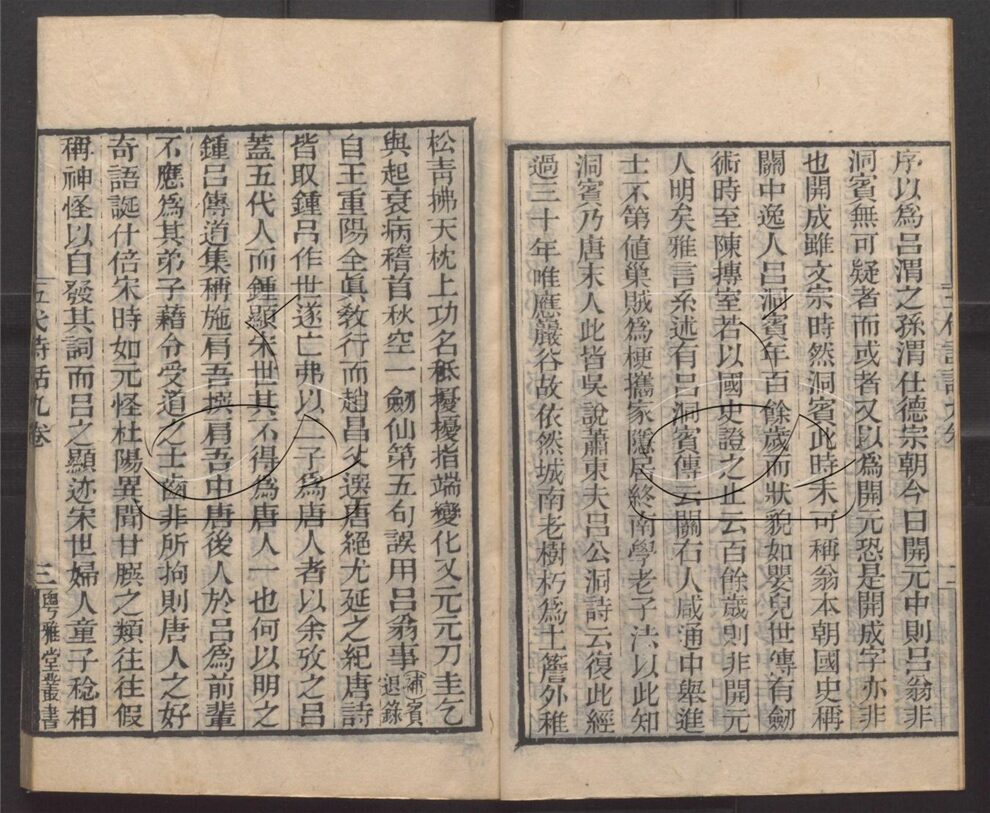 序以為呂渭之孫渭仕德宗朝今曰開元中則呂翁非
洞賓無可疑者而或者又以為開元恐是開成字亦非
也開成雖文宗時然洞賓此時未可稱翁本朝國史稱
關中逸人呂洞賓年百餘歲而狀貌如嬰兒世傳有劒
術時至陳摶室若以國史證之止云百餘歲則非開元
人明矣雅言系述有呂洞賓傳云關右人咸通中舉進
士不第値巢賊為梗攜家隱居終南學老子法以此知
洞賓乃唐末人此皆吳說蕭東夫呂公洞詩云復此經
過三十年唯應巖谷故依然城南老樹朽為土簷外稚
松靑拂天枕上功名秪擾擾指端變化又元元刀圭乞
與起衰病稽首秋空一劒仙第五句誤用呂翁事補賓退錄
自王重陽全眞敎行而趙昌父選唐絕尤延之紀唐詩
皆取鍾呂作世遂亡弗以二子為唐人者以余攷之呂
蓋五代人而鍾顯宋世其不得為唐人一也何以明之
鍾呂傳道集稱施肩吾撰肩吾中唐後人於呂為前輩
不應為其弟子藉令受道之士齒非所拘則唐人之好
奇語誕什倍宋時如元怪杜陽異聞甘𦠆之類往往假
稱神怪以自發其詞而呂之顯迹宋世婦人童子稔相
五代詩話九卷 三 粵雅堂叢書